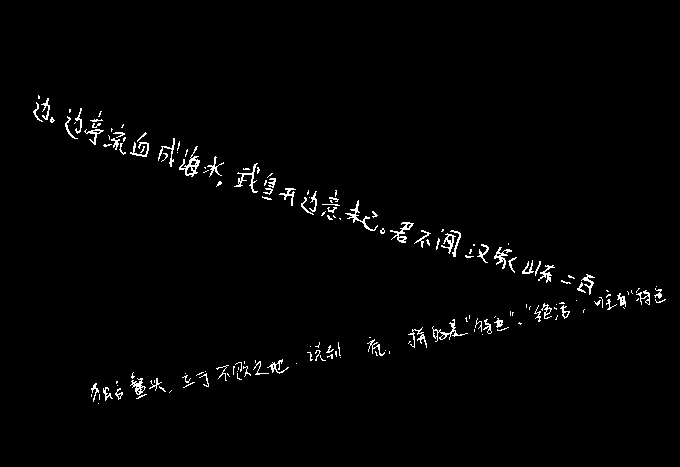 边。边亭流血成海水,武皇开边意未已。君不闻汉家山东二百
独占鳌头,立于不败之地.说到 底,拼的是“特色”、“绝活”,唯有“特色